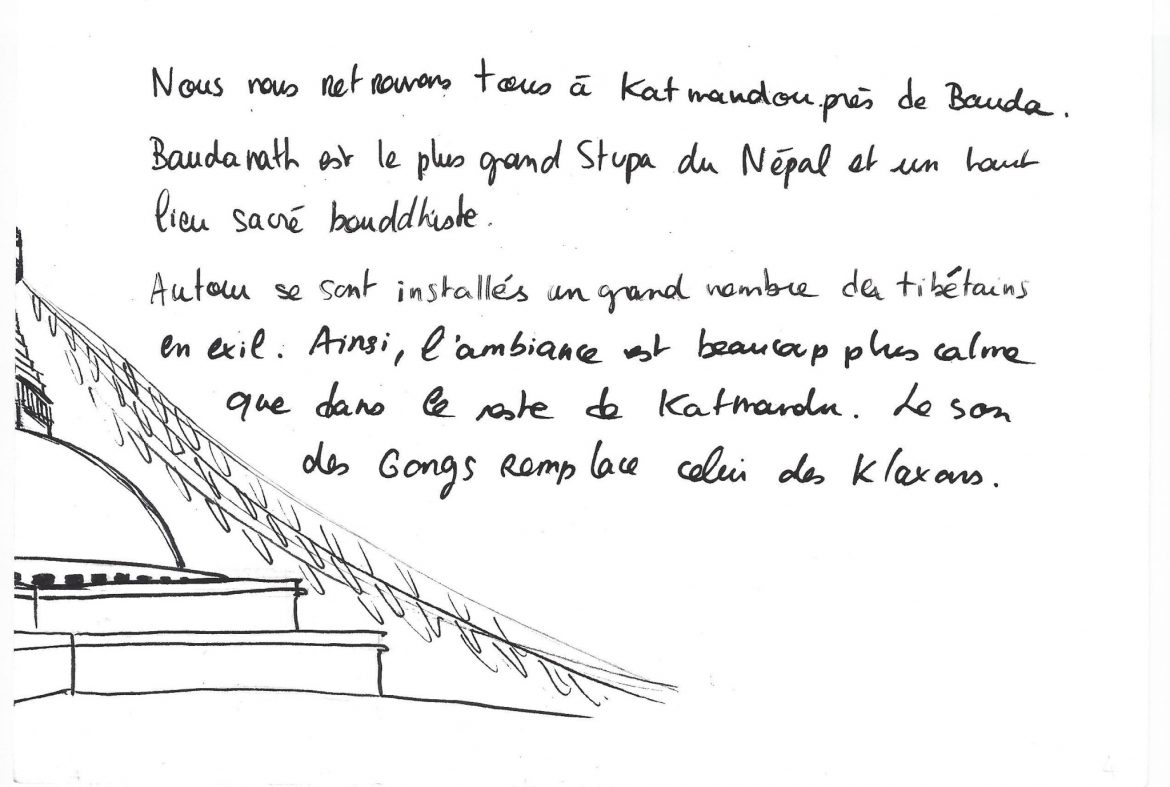 Nous nous retrouvons tous à Katmandou près de Bauda.
Baudanath est le plus grand Stupa du Népal et un haut
lieu sacré bouddhiste.
Autour se sont installés un grand nombre des tibétains
en exil. Ainsi, l'ambiance est beaucoup plus calme
que dans le reste de Katmandu. Le son
des Gongs remplace celui des Klaxons.